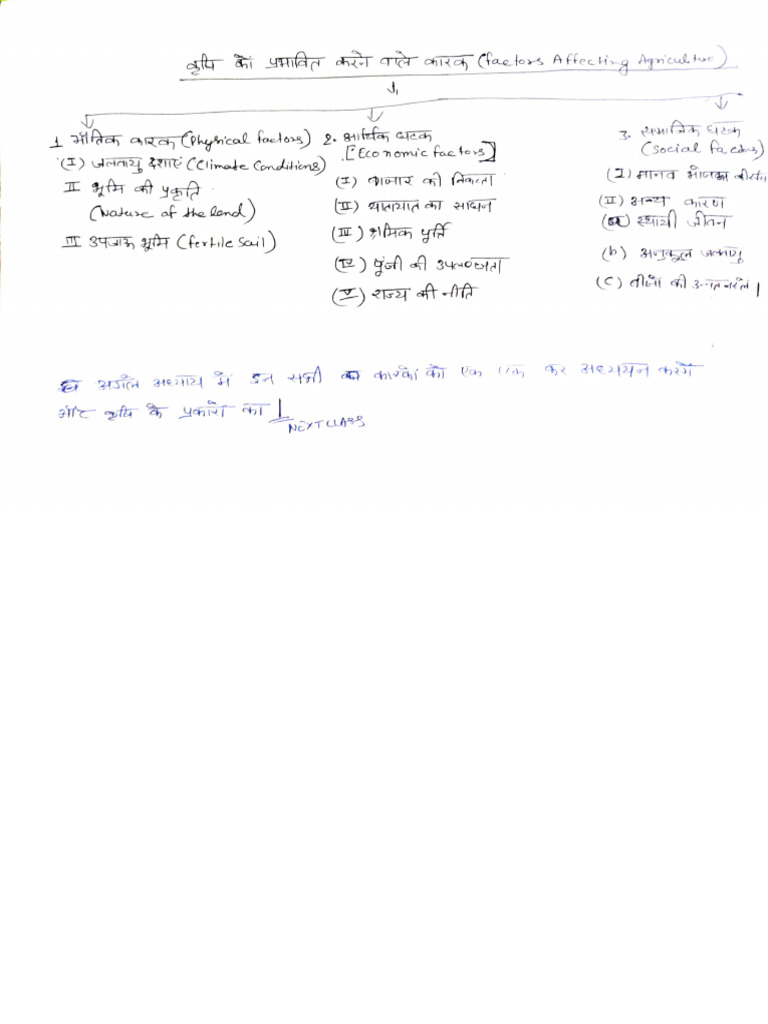 कृषि को प्रभावित करने वाले कारक (factors Affecting Agriculture)
1. भौतिक कारक (Physical factors)
(I) जलवायु दशाएं (Climate Conditions)
II भूमि की प्रकृति
(Nature of the land)
III उपजाऊ भूमि (fertile Soil)
2. आर्थिक घटक
[Economic factors]
(I) बाजार की निकटता
(II) यातायात का साधन
(III) श्रमिक पूर्ति
(IV) पूंजी की उपलब्धता
(V) राज्य की नीति
3. समाजिक घटक
(Social factors)
(I) मानव
(II) अन्य कारण
(a) स्थायी जीवन
(b) अनुकूल जलवायु
(C) बीजों की
अगले अध्याय में इन सभी कारकों को एक एक कर अध्ययन करेंगे
और कृषि के प्रकारों का |
NEXT CLASS